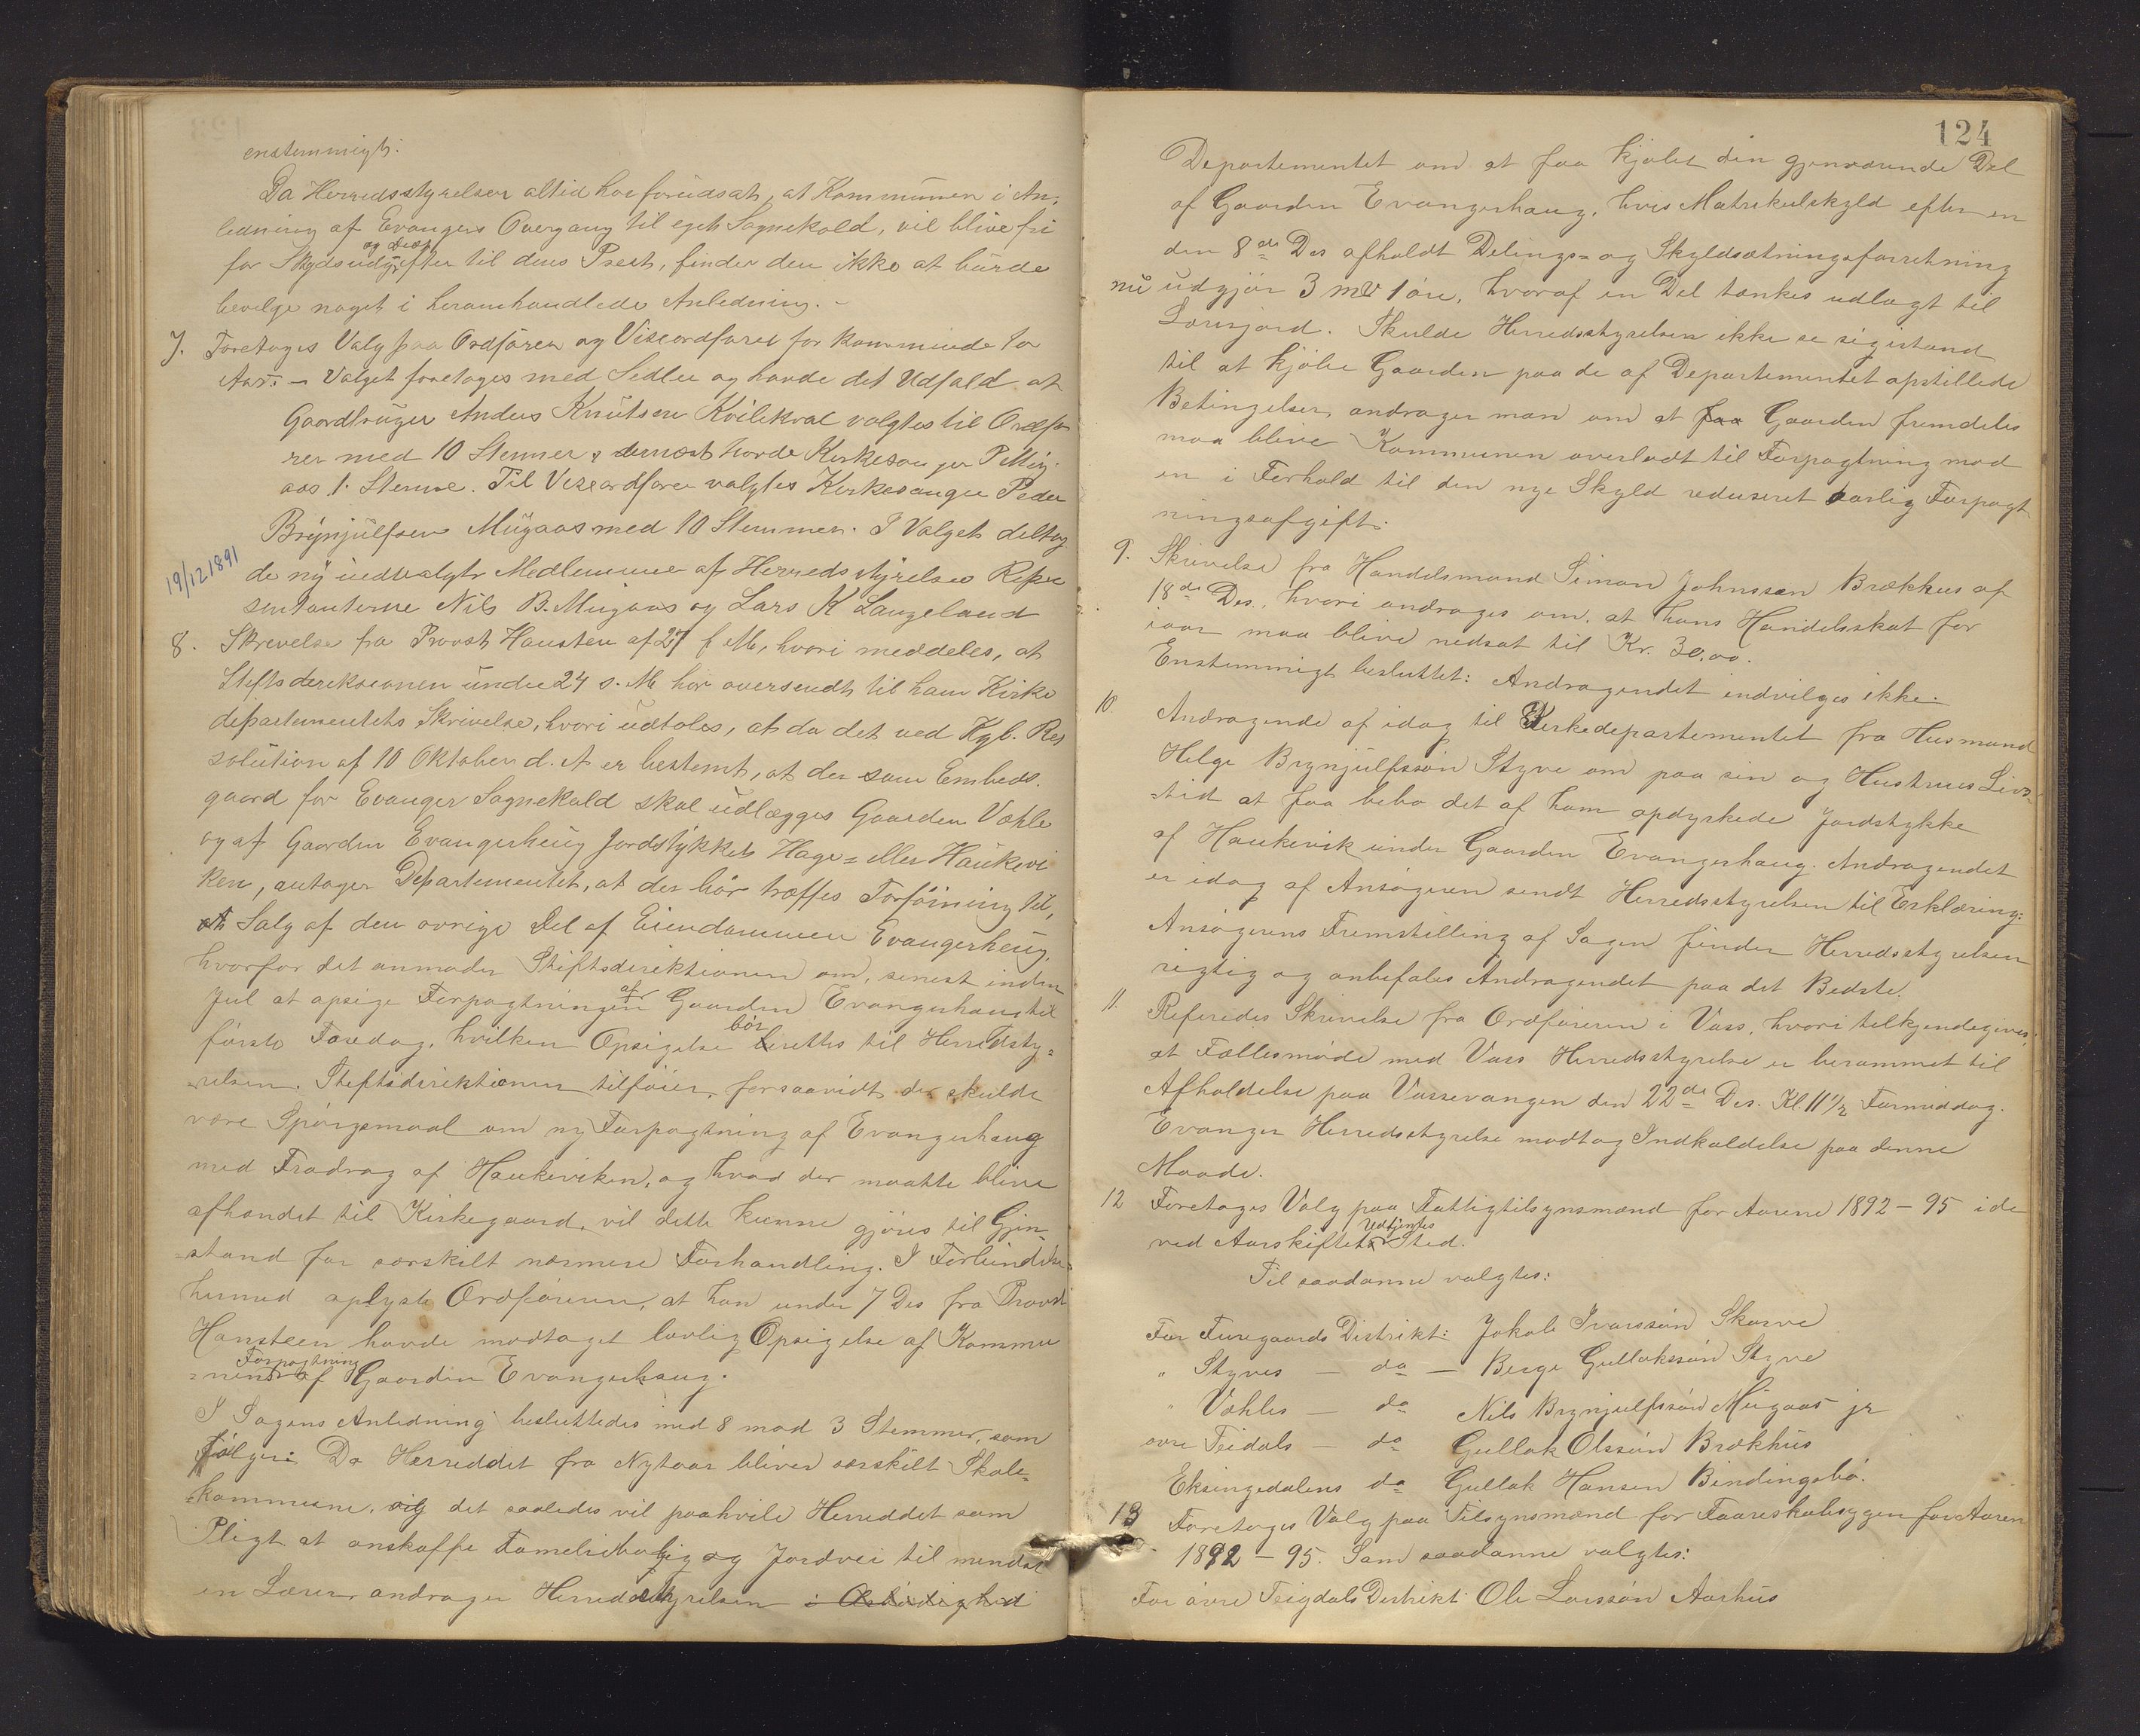 enstemmigt:
Da Herredsstyrelsen altid har forudsat, at Kommunen i An-
ledning af Evangers Overgang til eget Sognekald, vil blive fri
for Skydsudgifter og Diæt til dens Prest, finder den ikke at burde
bevilge noget i heromhandlede Anledning. -
7. Foretoges Valg paa Ordfører og Viseordfører for kommende to
Aar. - Valget foretoges med Sedler og havde det Udfald at
Gaardbruger Anders Knutsen Kvilekval valgtes til Ordfø
rer med 10 Stemmer, dernæst havde Kirkesanger P Mug-
aas 1. Stemme. Til Viseordfører valgtes Kirkesanger Peder
Brynjulfsen Mugaas med 10 Stemmer. I Valget deltog
19/12 1891
de ny indvalgte Medlemmer af Herredsstyrelsen Repre
sentanterne Nils B. Mugaas og Lars K Langeland
8. Skrivelse fra Provst Hansteen af 27 f M, hvori meddeles, at
Stiftsdireksionen under 24 s. M har oversendt til ham Kirke
departementets Skrivelse, hvori udtales, at da det ved Kgl. Res
solution af 10 Oktober d. A er bestemt, at der som Embeds-
gaard for Evanger Sognekald skal udlægges Gaarden Væhle
og af Gaarden Evangerheug Jordstykket Hage= eller Haukevi
ken, antager Departementet, at der bør træffes Forføining til,
at Salg af den øvrige Del af Eiendommen Evangerheug,
hvorfor det anmoder Stiftsdirektionen om, senest inden
Jul at opsige Forpagtningen af Gaarden Evangerhaug til
første Faredag, hvilken Opsigelse bør rettes til Herredsty=
relsen. Stiftsdirektionen tilføier, forsaavidt der skulde
være Spørgsmaal om ny Forpagtning af Evangerhaug
med Fradrag af Haukeviken, og hvad der maatte blive
afhændet til Kirkegaard, vil dette kunne gjøres til Gjen-
=stand for særskilt nærmere Forhandling. I Forbindelse
hermed oplyste Ordføreren, at han under 7 Des fra Provst
Hansteen havde modtaget lovlig Opsigelse af Kommu
=nens Forpagtning af Gaarden Evangerhaug.
I Sagens Anledning besluttedes med 8 mod 3 Stemmer, som
følger: Da Herreddet fra Nytaar bliver særskilt Skole=
=kommune, og det saaledes vil paahvile Herreddet som
Pligt at anskaffe Familiebolig og Jordvei til mindst
en Lærer, andrager Herredsstyrelsen
124
Departementet om at faa kjøbt den gjenværende Del
af Gaarden Evangerhaug, hvis Matrikulskyld efter en
den 8de Des afholdt Delings= og Skyldsætningsforretning
nu udgjør 3 mk 1 øre, hvoraf en Del tænkes udlagt til
Lærerjord. Skulde Herredsstyrelsen ikke se sig istand
til at kjøbe Gaarden paa de af Departementet opstillede
Betingelser, andrager man om at faa Gaarden fremdeles
maa blive Kommunen overladt til Forpagtning mod
en i Forhold til den nye Skyld reduseret aarlig Forpagt
ningsafgift.
9. Skrivelse fra Handelsmand Simon Johnssen Brækkus af
18de Des., hvori andrages om, at hans Handelsskat for
iaar maa blive nedsat til Kr. 30,00.
Enstemmigt besluttet: Andragendet indvilges ikke.
10. Andragende af idag til Kirkedepartementet fra Husmand
Helge Brynjulfssøn Styve om paa sin og Hustrues Livs-
=tid at faa bebo det af ham opdyrkede Jordstykke
af Haukevik under Gaarden Evangerhaug. Andragendet
er idag af Ansøgeren sendt Herredsstyrelsen til Erklæring:
Ansøgerens Fremstilling af Sagen finder Herredsstyrelsen
rigtig og anbefales Andragendet paa det Bedste.
11. Refereredes Skrivelse fra Ordføreren i Voss, hvori tilkjendegives,
at Fællesmøde med Voss Herredsstyrelse er berammet til
Afholdelse paa Vossevangen den 22de Des. Kl. 11 1/2 Formiddag.
Evanger Herredsstyrelse modtog Indkaldelse paa denne
Maade.
12 Foretoges Valg paa Fattigtilsynsmænd for Aarene 1892 - 95 i de
ved Aarskiftet Udtjentes Sted.
Til saadanne valgtes:
For Furegaards Distrikt: Jakob Ivarssøn Skorve
" Styves - do - Berge Gullakssøn Styve
" Væhles - do Nils Brynjulfssøn Mugaas jr
øvre Teidals - do Gullak Olssøn Brækhus
Eksingedalens do Gullak Hansen Bindingsbø.
13 Foretoges Valg paa Tilsynsmænd for Faareskabsygen for Aaren
1892 - 95. Som saadanne valgtes:
For øvre Teigdals Distrikt: Ole Larssøn Aarhus